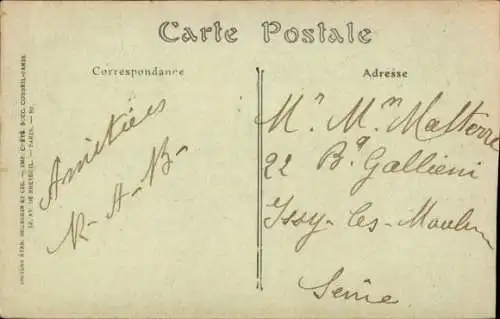 Carte Postale
Correspondance
Adresse
Amitiés
R-A-B-
Mr Mm Malterre
22 Bd Gallieni
Issy-les-Moulin
Seine